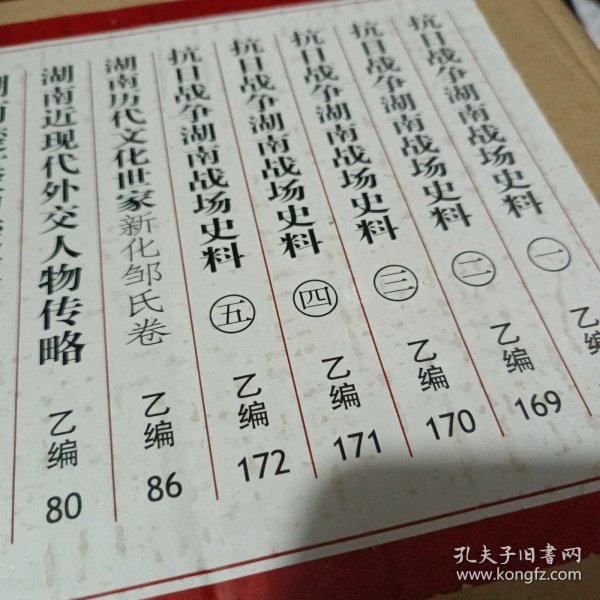 抗日战争湖南战场史料 一 乙编 169
抗日战争湖南战场史料 二 乙编 170
抗日战争湖南战场史料 三 乙编 171
抗日战争湖南战场史料 四 乙编 172
抗日战争湖南战场史料 五
湖南历代文化世家新化邹氏卷 乙编 86
湖南近现代外交人物传略 乙编 80
乙编
孔夫子旧书网
www.kongfz.com